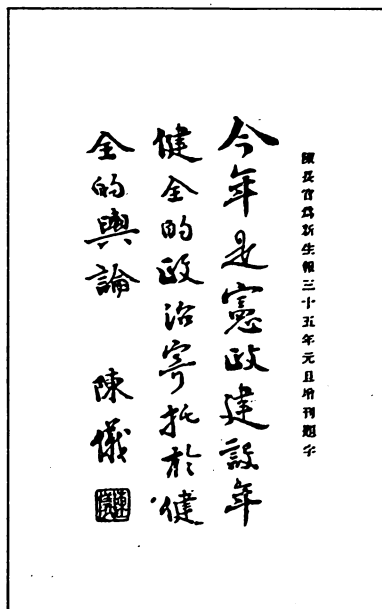 陳長官為新生報三十五年元旦增刊題字
今年是憲政建設年
健全的政治寄托於健
全的輿論
陳儀